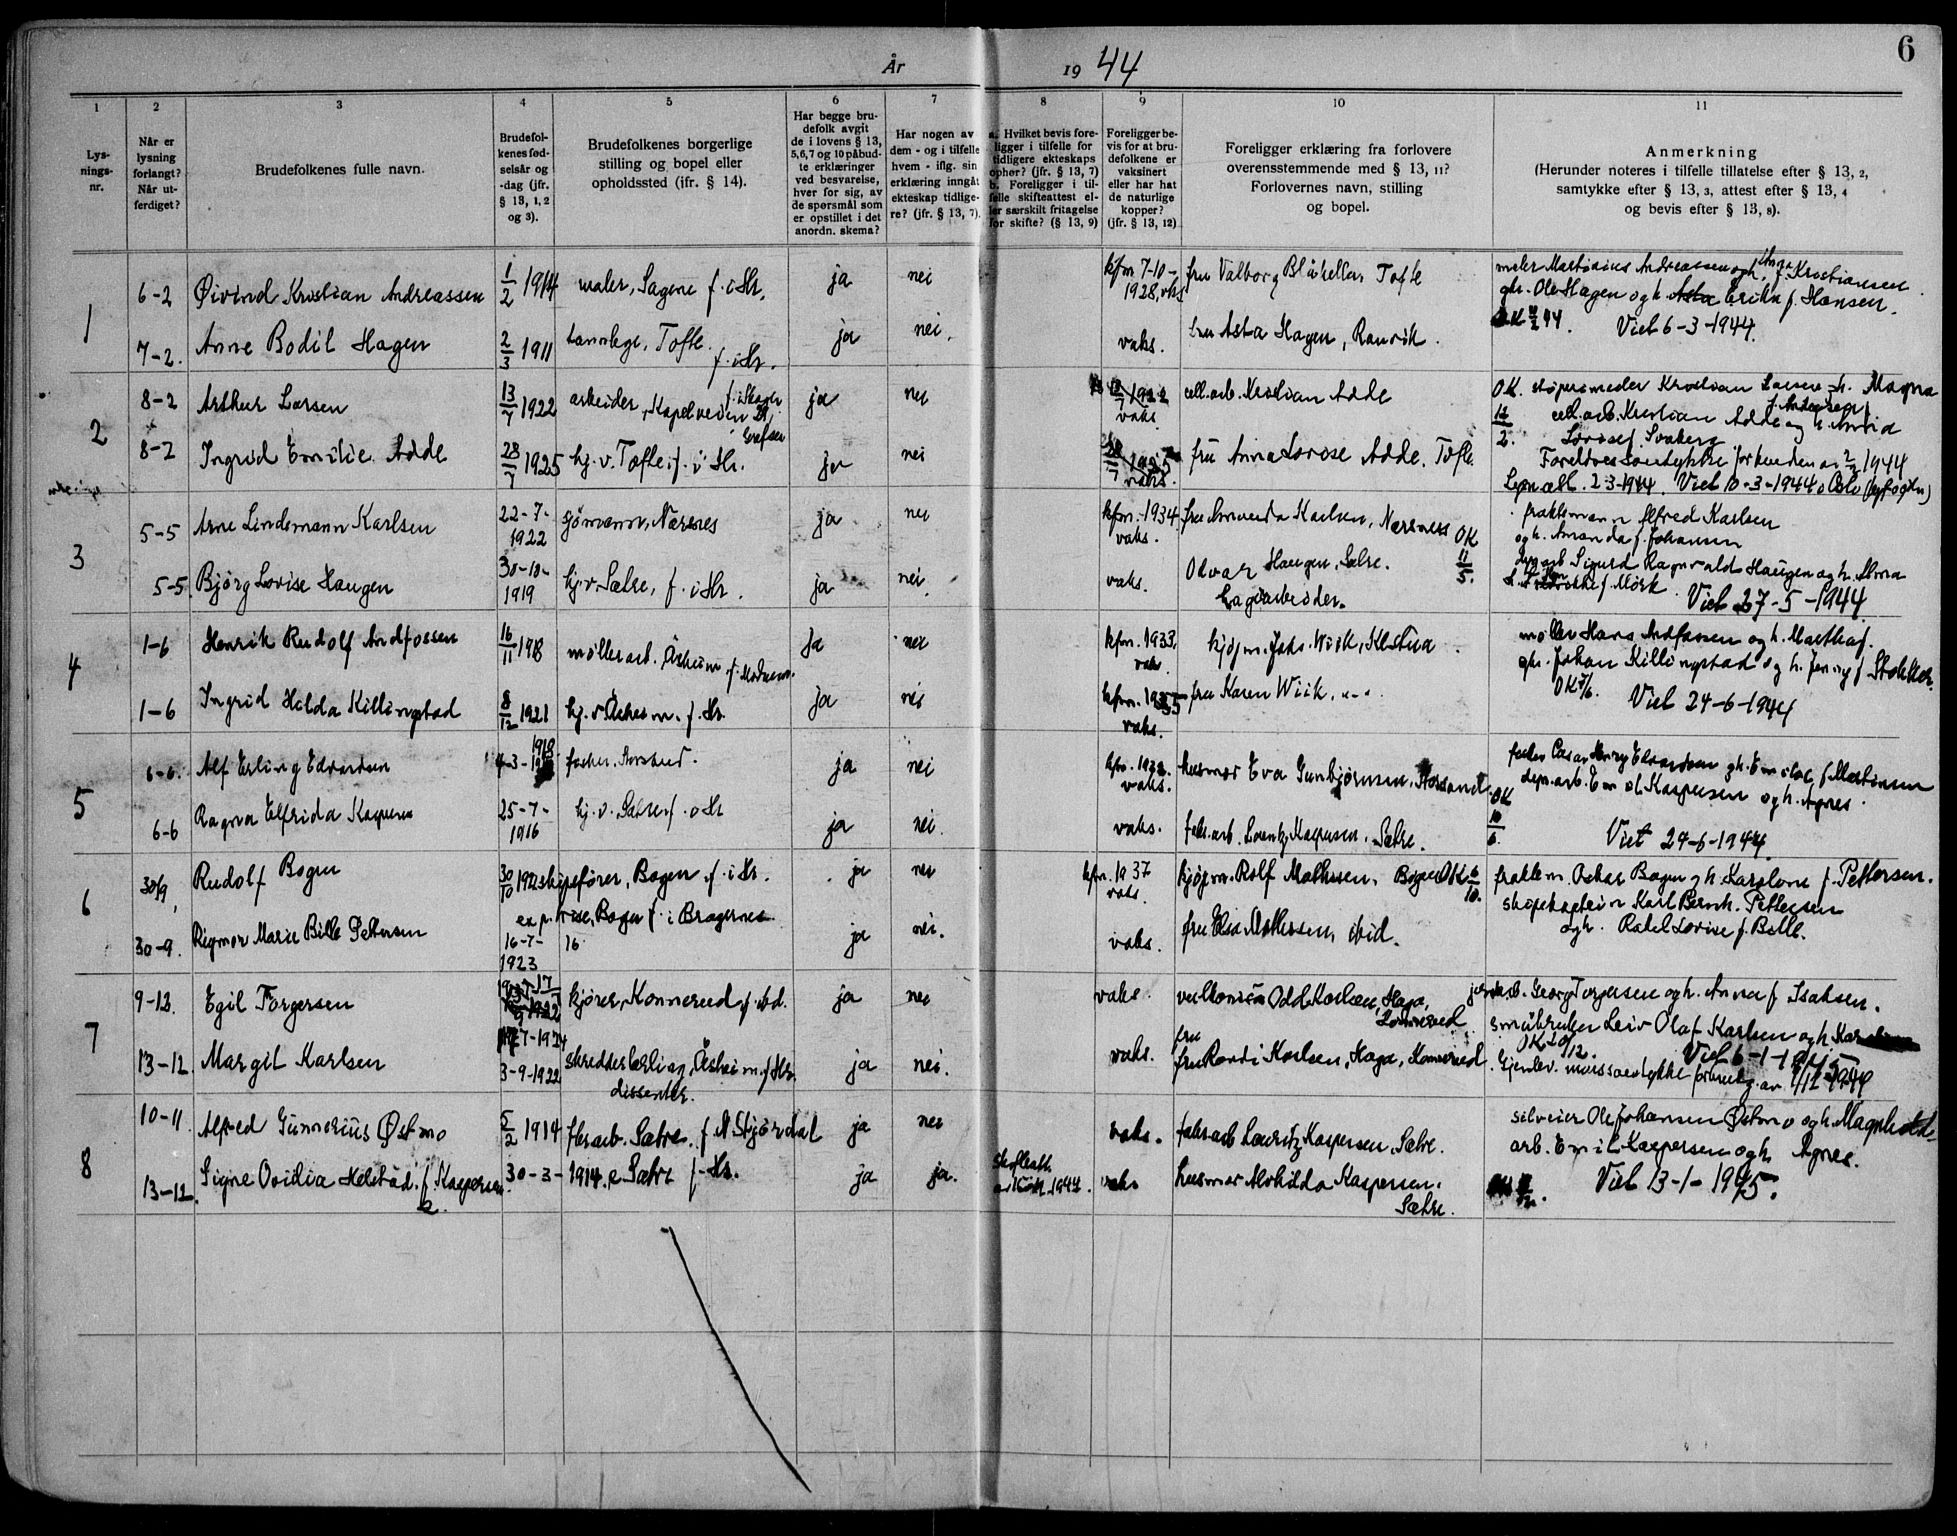 6
År 1944
1
2
3
4
5
6
7
8
9
10
11
Lys-
nings-
nr.
Når er
lysning
forlangt?
Når ut-
ferdiget?
Brudefolkenes fulle navn.
Brudefol-
kenes fød-
selsår og
-dag (jfr.
§ 13, 1, 2
og 3).
Brudefolkenes borgerlige
stilling og bopel eller
opholdssted (ifr. § 14).
Har begge bru-
defolk avgit
de i lovens § 13,
5,6,7 og 10 påbud-
te erklæringer
ved besvarelse,
hver for sig, av
de spørsmål som
er opstillet i det
anordn. skema?
Har nogen av
dem - og i tilfelle
hvem - iflg. sin
erklæring inngåt
ekteskap tidlige-
re? (jfr. § 13, 7).
a. Hvilket bevis fore-
ligger i tilfelle for
tidligere ekteskaps
ophør? (jfr. § 13, 7)
b. Foreligger i til-
felle skifteattest el-
ler særskilt fritagelse
for skifte? (§ 13, 9)
Foreligger be-
vis for at bru-
defolkene er
vaksinert
eller har hat
de naturlige
kopper?
(jfr. § 13, 12)
Foreligger erklæring fra forlovere
overensstemmende med § 13, 11?
Forlovernes navn, stilling
og bopel.
Anmerkning
(Herunder noteres i tilfelle tillatelse efter § 13, 2,
samtykke efter § 13, 3, attest efter § 13, 4
og bevis efter § 13, 8).
1
6-2 Øivind Kristian Andreassen 1/2 1914 maler, Sagene f. i Hr. ja nei kfm 7-10-1928, vaks fru Valborg Blåkollen Tofte
maler Martinius Andreassen og h. Anna f. Kristiansen
7-2. Anne Bodil Hagen 2/3 1911 tannlege, Tofte. f. i Hr. ja nei. vaks. fru Asta Hagen, Ranvik.
gbr. Ole Hagen og h. Erika f. Hansen.
Viet 6-3-1944.
2
8-2 Arthur Larsen 13/7 1922 arbeider, Kapelveien ja nei vaks cell.arb. Kristian Adde
OK. støperimester Kristian Larsen h. Magna
f. Andersen
8-2 Ingrid Emilie Adde 28/7 1925 hj. v. Tofte f. i Hr. ja nei vaks. fru Anna Lovise Adde. Tofte.
cell.arb. Kristian Adde og h. Anna
Lovise f. Svaberg
1944
2-3-1944. Viet 10-3-1944 i Oslo
3
5-5 Arne Lindemann Karlsen 22-7-1922 sjømann, Nærsnes ja nei kfm. 1934 vaks. fru Amanda Karlsen, Nærsnes OK 11/5.
fraktemann Alfred Karlsen
og h. Amanda f. Johansen
5-5 Bjørg Lovise Haugen 30-10-1919 hj. v. Sætre, f. i Hr. ja nei. vaks. Odvar Haugen, Sætre.
lagerarbeider.
Sigurd Ragnvald Haugen og h. Anna
f. Mørk. Viet 27-5-1944
4
1-6 Henrik Rudolf Andfossen 16/11 1918 møllerarb. Åsheim f. Modum. ja nei kfm. 1933, vaks kjøpm. Johs. Wiik, Klostua.
møller Hans Andfossen og h. Martha f.
1-6 Ingrid Hilda Killingstad 8/12 1921 hj. v Åsheim. f. Hr. ja nei kfm. 1935 vaks. fru Karen Wiik, "-"
gbr. Johan Killingstad og h. Jenny f. Stokker.
OK 7/6. Viet 24-6-1944
5
6-6. Alf Erling Edvardsen 4-3-1918 fisker, Storsand. ja nei vaks. husmor Eva Gunbjørnsen, Storsand.
fisker Casar Henry Edvardsen og h. Emilie f. Martinsen
6-6 Ragna Elfrida Kaspersen 25-7-1916 hj. v. Sætre f. i Hr ja nei. vaks. fabr.arb. Lauritz Kaspersen, Sætre.
OK 10/6. arb. Emil Kaspersen og h. Agnes.
Viet 24-6-1944.
6
30/9, Rudolf Bogen 30/10 1921 skipsfører, Bogen f. i Hr. ja nei kfm. 1937 vaks. kjøpm. Rolf Mathisen, Bogen OK 6/10.
fraktem. Oskar Bogen og h. Karoline f. Pettersen.
30-9. Rigmor Marie Bille Pettersen 16-7-1923 Bogen f. i Bragernes 16 ja nei. vaks. fru Elsa Mathisen, ibid.
skipskaptein Karl Bernh. Pettersen
og h. Rakel Lovise f. Bille.
7
9-12. Egil Torgersen kjører, Konnerud f. ibd. ja nei vaks. Odd Karlsen, Haga,
Konnerud
Georg Torgersen og h. Anna f. Isaksen.
13-12. Margit Karlsen 3-9-1922 Åsheim f. Hr.
dissenter. ja nei. vaks. fru Randi Karlsen, Haga, Konnerud
småbruker Leiv Olaf Karlsen og h.
Viet 6-1-1945
8
10-11 Alfred Gunnerius Østmo 5/2 1914 f.br.arb. Sætre. f. N. Stjørdal ja nei vaks. fabr.arb Lauritz Kaspersen, Sætre.
Ole Johannes Østmo og h.
13-12. Signe Ovidia Helstad f. Kaspersen 30-3-1914. e Sætre f. Hr. ja ja. skifteatt. 1944. vaks husmor Alvhilda Kaspersen.
Sætre.
arb. Emil Kaspersen og h. Agnes.
Viet 13-1-1945.